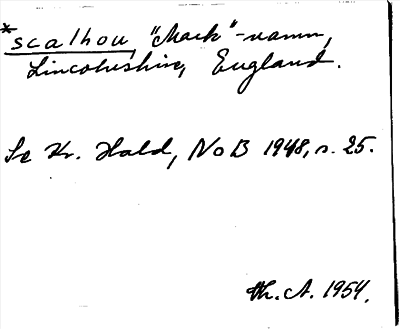 *scalhou, "Mark"-namn,
Lincolnshire, England.
Se Kr. Hald, NoB 1948, s. 25.
Th. A. 1954.